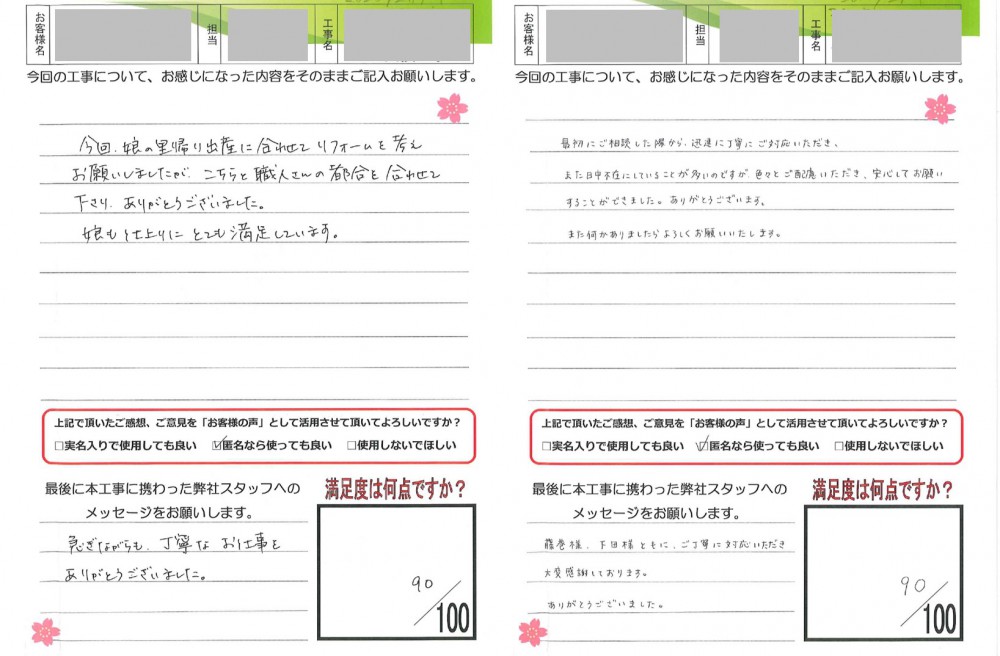 お客様名
担当
工事名
今回の工事について、お感じになった内容をそのままご記入お願いします。
今回、娘の里帰り出産に合わせてリフォームを考え
お願いしましたが、こちらと職人さんの都合を合わせて
下さり、ありがとうございました。
娘も仕上りにとても満足しています。
上記で頂いたご感想、ご意見を「お客様の声」として活用させて頂いてよろしいですか？
□実名入りで使用しても良い ☑匿名なら使っても良い □使用しないでほしい
最後に本工事に携わった弊社スタッフへの
メッセージをお願いします。
急ぎながらも、丁寧なお仕事を
ありがとうございました。
満足度は何点ですか？
90/100
お客様名
担当
工事名
今回の工事について、お感じになった内容をそのままご記入お願いします。
最初にご相談した際から、迅速に丁寧にご対応いただき、
また日中不在にしていることが多いのですが、色々とご配慮いただき、安心してお願い
することができました。ありがとうございます。
また何かありましたらよろしくお願いいたします。
上記で頂いたご感想、ご意見を「お客様の声」として活用させて頂いてよろしいですか？
□実名入りで使用しても良い ☑匿名なら使っても良い □使用しないでほしい
最後に本工事に携わった弊社スタッフへの
メッセージをお願いします。
藤巻様、下田様ともに、ご丁寧に対応いただき
大変感謝しております。
ありがとうございました。
満足度は何点ですか？
90/100